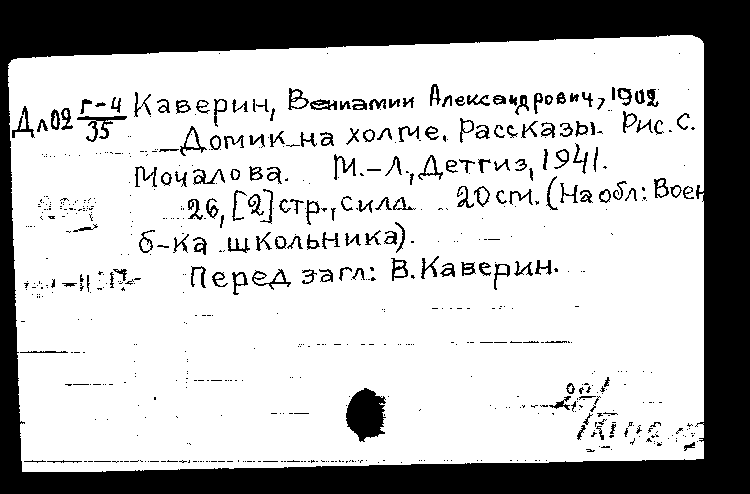 Дл02 Г-4/35 Каверин, Вениамин Александрович, 1902
Домик на холме. Рассказы. Рис. С.
Мочалова. М.-Л., Детгиз, 1941.
26, [2] стр., с илл. 20 см. (На обл: Воен
б-ка школьника).
Перед загл: В. Каверин.